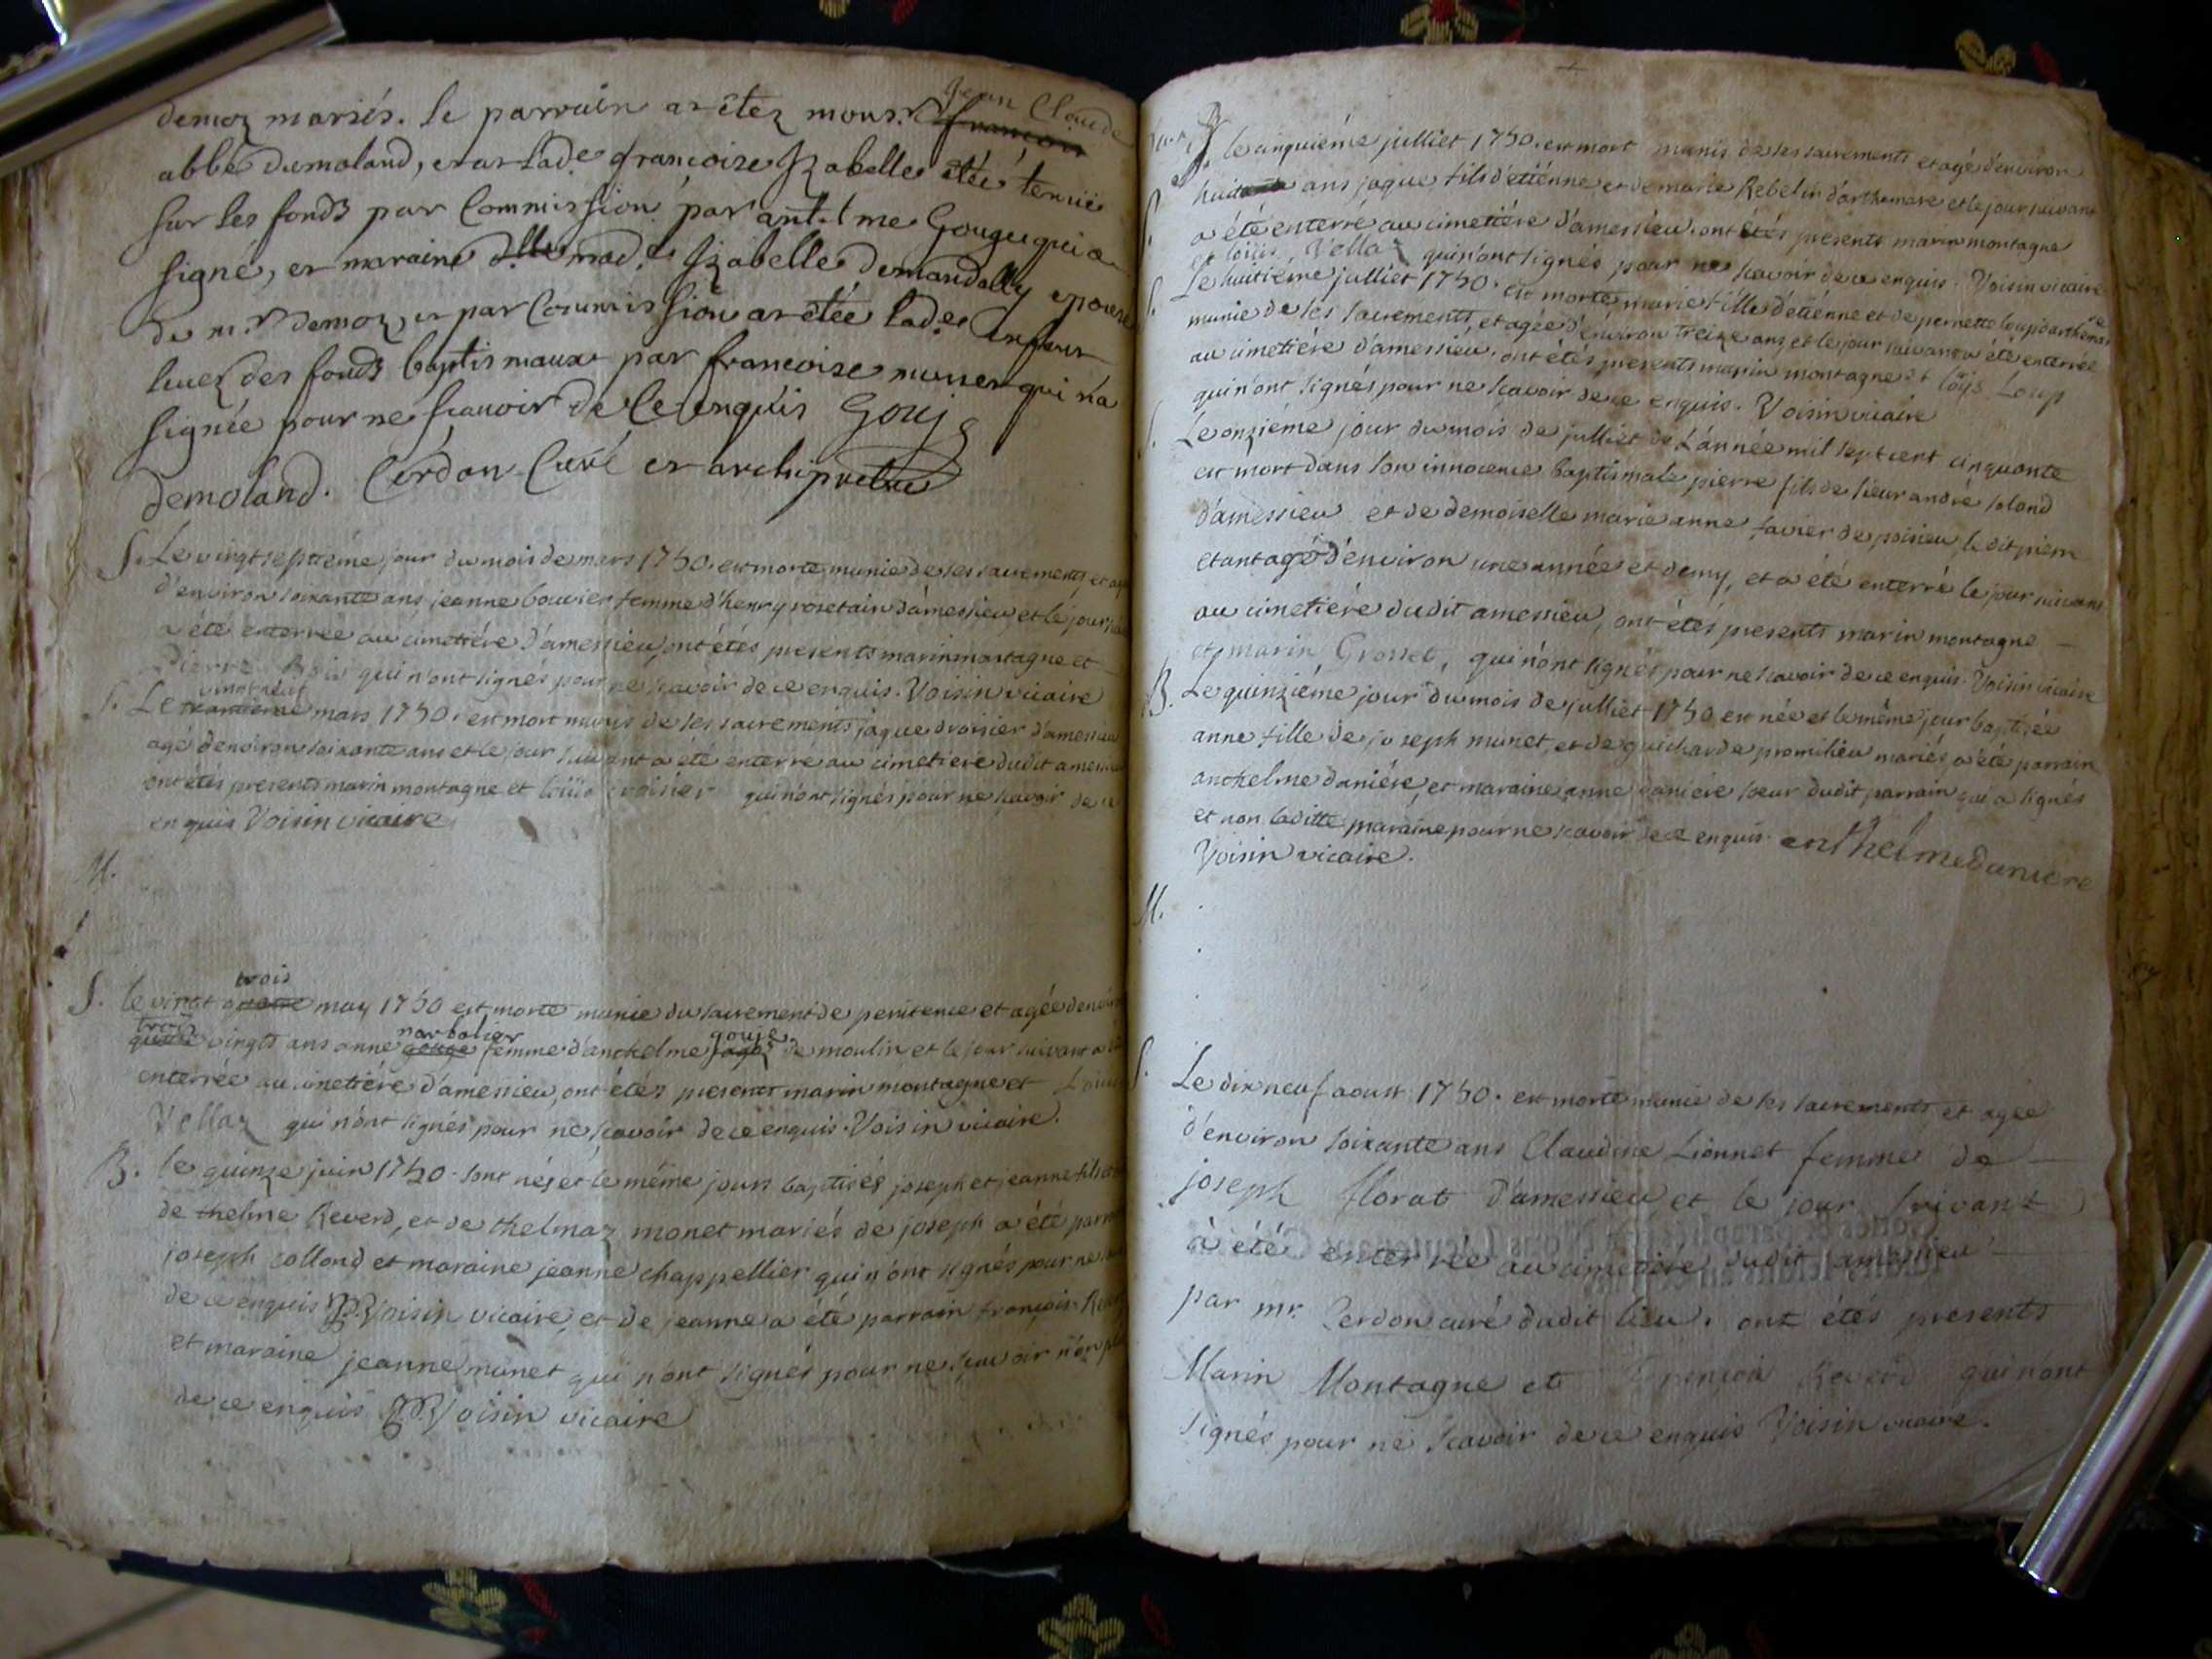 Jean Claude
demoz mariés. le parrain at êtez mons.r françois
abbé Dumoland, et at lad.e françoise Izabelle étéé tenuë
sur les fonds par Commission par ant.lme Gouge qui a
signé, et maraine mad.e Izabelle demandally epouse
de m.r demoz, et par Commission at étée lad.e enfant
leuez des fonds baptismaux par francoise munet qui n'a
signée pour ne scauoir de ce enquis Gouje
demoland. Cerdon Curé et archiprêtre
S. Le vingt septième jour du mois de mars 1750. est morte munie de ses sacrements, et agé
d'environ soixante ans jeanne bouvier femme d'henry rosetain d'amessieu, et le jour
a été enterrée au cimetière d'amessieu, ont étés presents marin montagne et
Pierre qui n'ont signés pour ne scavoir de ce enquis. Voisin vicaire
vingt neuf
S. Le trantième mars 1750. est mort munis de ses sacrements jaque droisier d'amessieu
agé denviron soixante ans et le jour suivant a été enterré au cimetière dudit amessieu
ont étés presents marin montagne et loüis croisier qui n'ont signés pour ne scavoir de ce
enquis Voisin vicaire
M.
trois
S. le vingt quatre may 1750 est morte munie du sacrement de penitence et agée denviron
trois narbalier gouje
quatre vingts ans anne gouge femme d'anthelme de moulin et le jour suivant a
enterrée au cimetière d'amessieu, ont étés presents marin montagne et Loüis
Vellaz qui n'ont signés pour ne scavoir de ce enquis. Voisin vicaire.
B. le quinze juin 1750. sont nés et le même jours baptisés joseph et jeanne fils et
de thelme Reverd, et de thelmaz monet mariés de joseph a été parrain
joseph collond et maraine jeanne chappellier qui n'ont signés pour ne
de ce enquis Voisin vicaire, et de jeanne a été parrain françois
et maraine jeanne munet qui n'ont signés pour ne scavoir non plus
de ce enquis Voisin vicaire
S. le cinquième julliet 1750. est mort munis de ses sacrements et agé d'environ
huit ans jaque fils d'etiénne et de marie Rebelin d'arthemare et le jour suivant
a été enterré au cimetière d'amessieu. ont étés presents marin montagne
et loüis Vellaz qui n'ont signés pour ne scavoir de ce enquis. Voisin vicaire
S. Le huitième julliet 1750. est morte marie fille d'etiénne et de pernette loup d'arthemare
munie de ses sacrements, et agée d'environ treize ans, et le jour suivant a été enterrée
au cimetière d'amessieu. ont étés presents marin montagne et loüis Loup
qui n'ont signés pour ne scavoir de ce enquis. Voisin vicaire
S. Le onzième jour du mois de julliet de L'année mil sept cent cinquante
est mort dans son innocence baptismale pierre fils de sieur andré solond
d'amessieu et de demoiselle marie anne favier de poisieu, le dit pierre
etant agé d'environ une année et demy, et a été enterré le jour suivant
au cimetière dudit amessieu, ont étés presents marin montagne
et marin Grosset, qui n'ont signés pour ne scavoir de ce enquis. Voisin vicaire
B. Le quinzième jour du mois de julliet 1750 est née et le même jour baptisée
anne fille de joseph munet, et de guicharde promilieu mariés a été parrain
anthelme daniére, et maraine anne daniére soeur dudit parrain qui a signés
et non laditte maraine pour ne scavoir de ce enquis anthelme daniere
Voisin vicaire.
M.
S. Le dix neuf aoust 1750. est morte munie de ses sacrements, et agée
d'environ soixante ans Claudine Lionnet femme de
joseph florat d'amessieu et le jour suivant
à été enterrée au cimetière dudit amessieu
par mr. Cerdon curé dudit lieu. ont étés presents
Marin Montagne et François Reverd qui n'ont
signés pour ne scavoir de ce enquis Voisin vicaire.